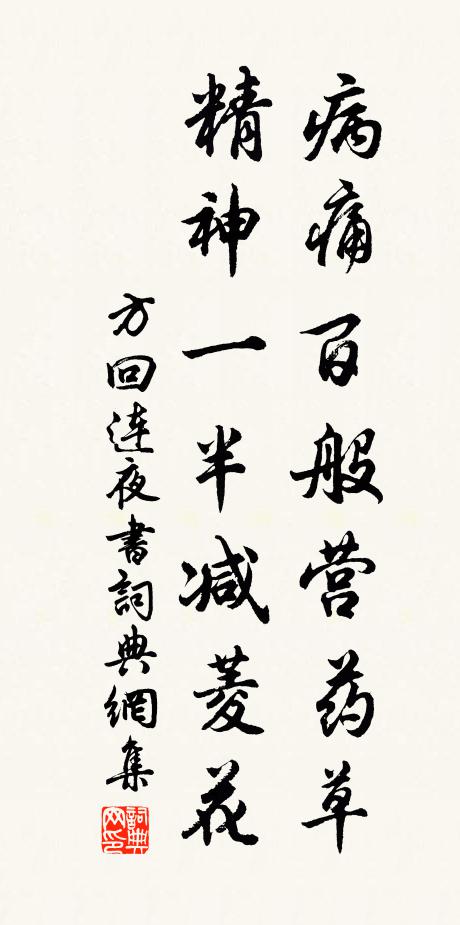 病痛百般营药草
精神一半减菱花
方回连夜書詞典網集
詞典网印